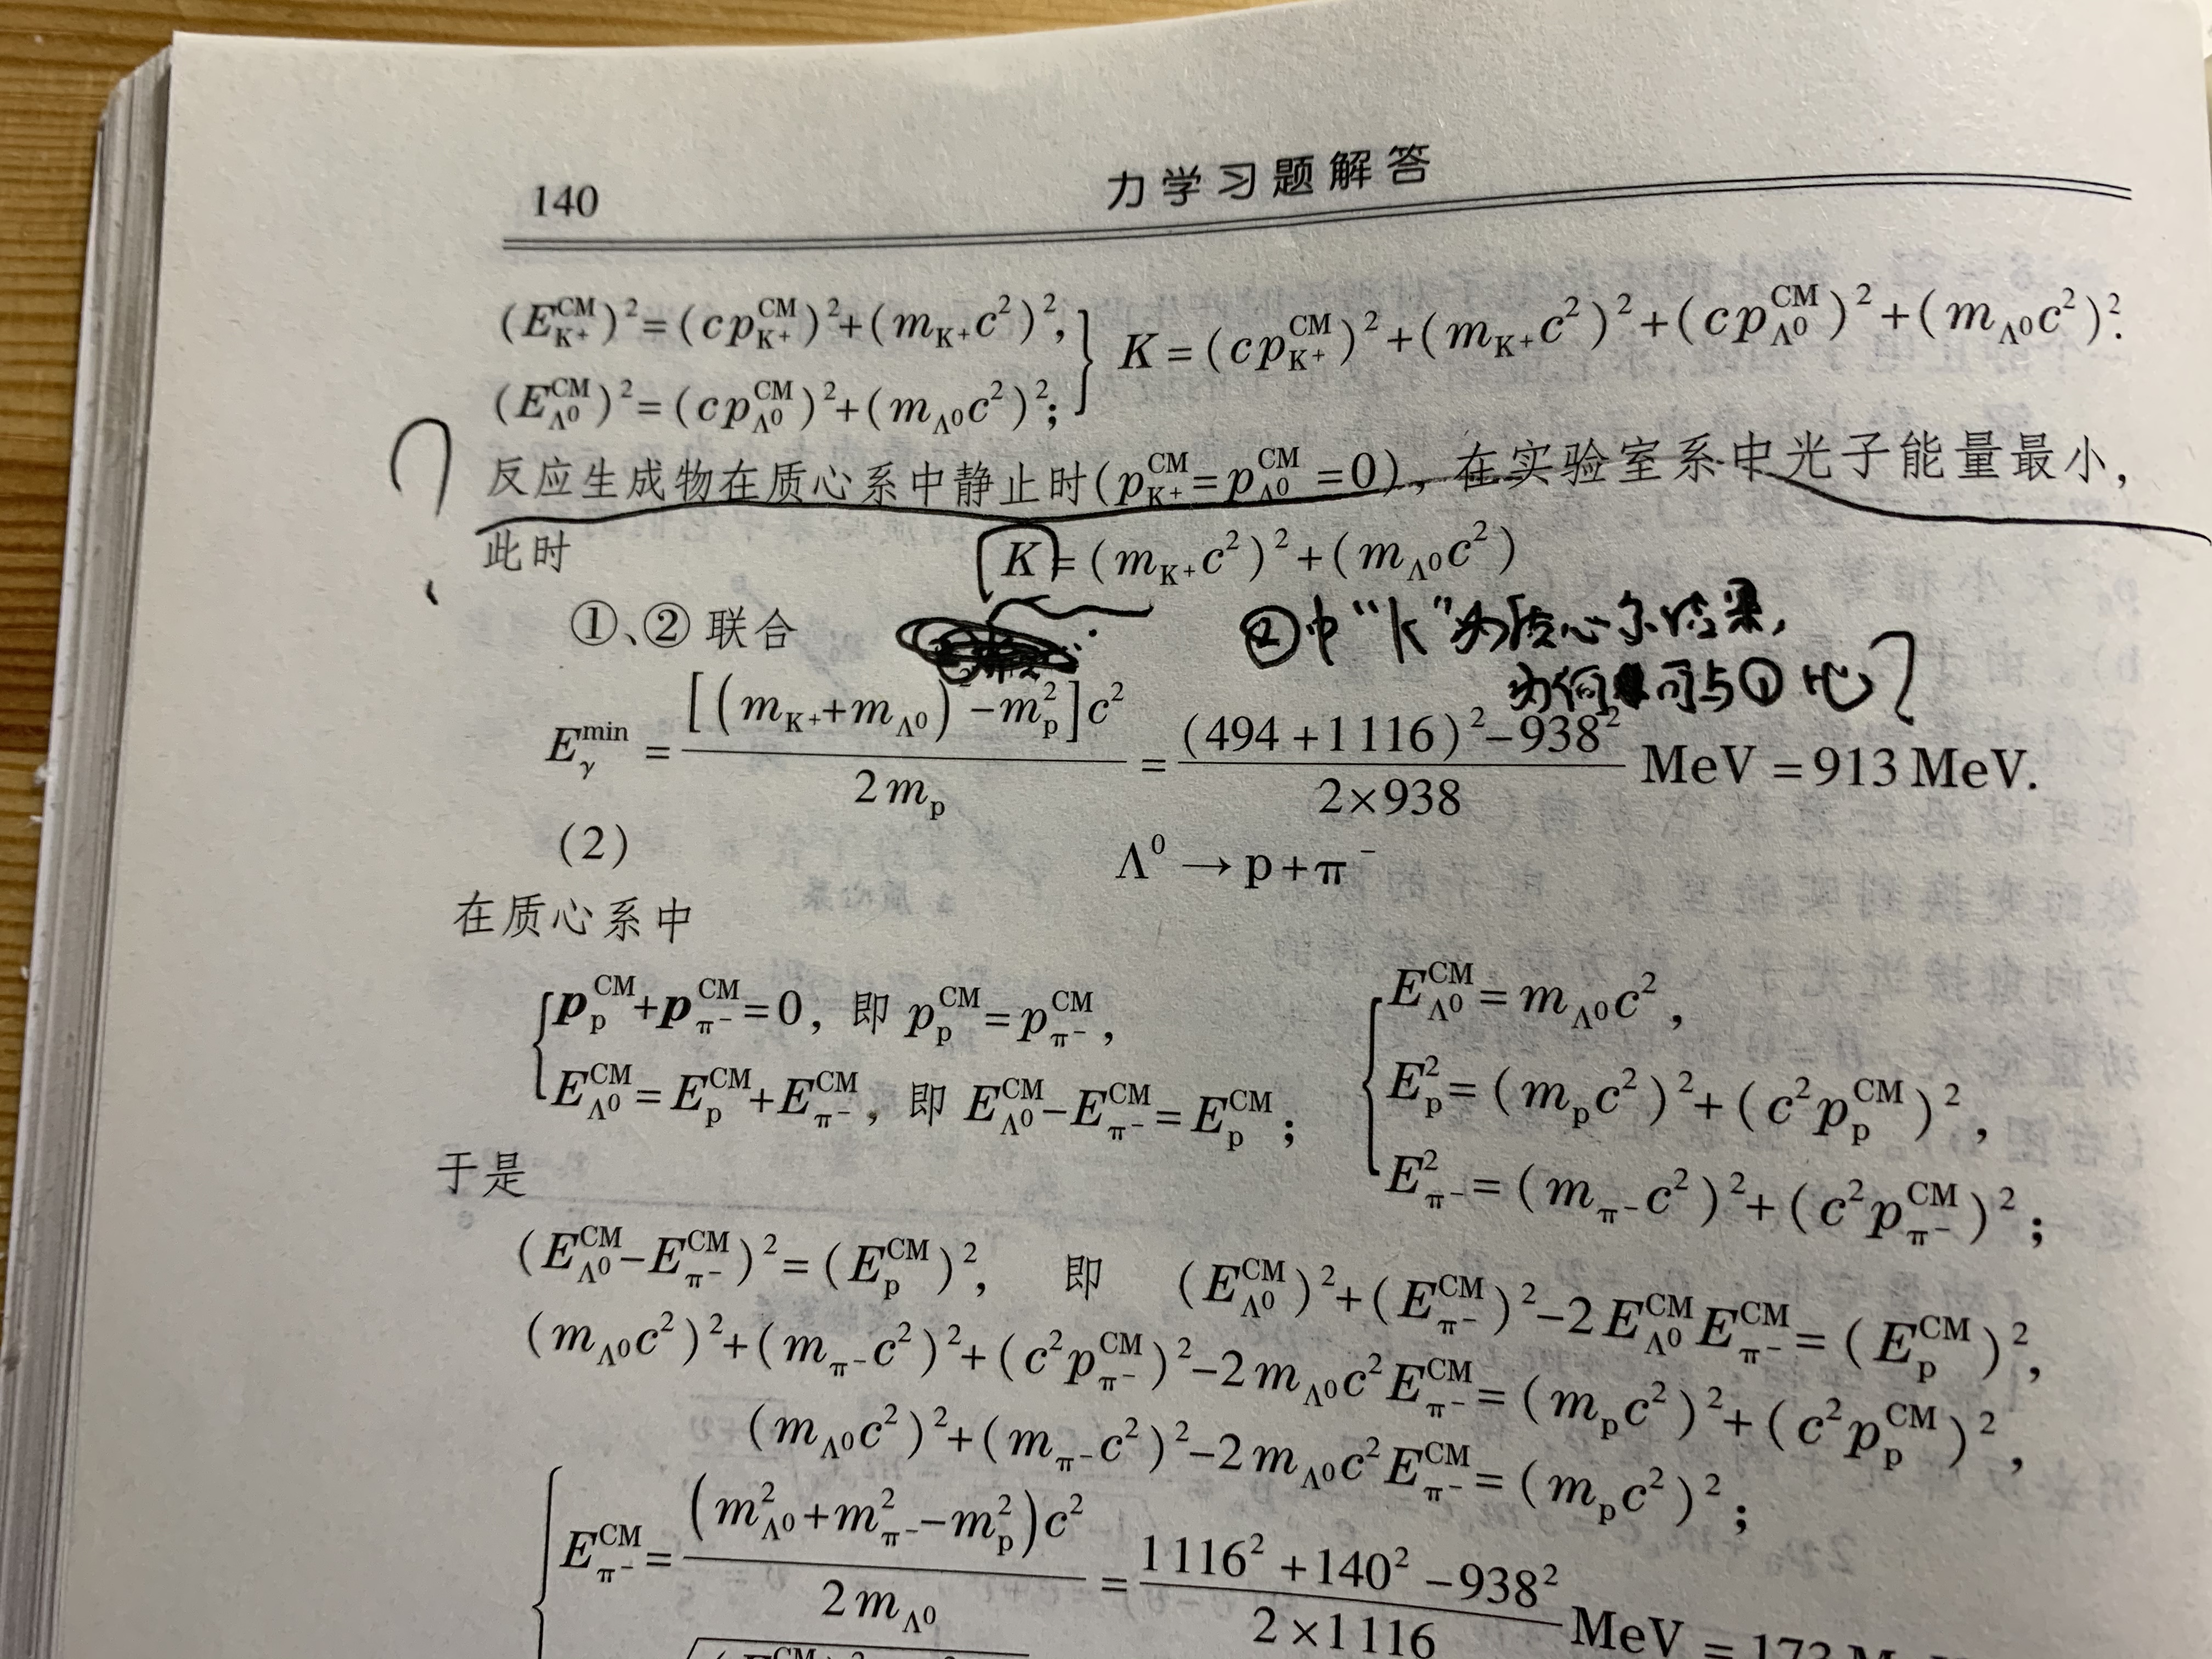 140
力学习题解答
(E_{K^+}^{CM})^2=(cp_{K^+}^{CM})^2+(m_{K^+}c^2)^2,
(E_{Λ^0}^{CM})^2=(cp_{Λ^0}^{CM})^2+(m_{Λ^0}c^2)^2; } K=(cp_{K^+}^{CM})^2+(m_{K^+}c^2)^2+(cp_{Λ^0}^{CM})^2+(m_{Λ^0}c^2)^2.
?
反应生成物在质心系中静止时(p_{K^+}^{CM}=p_{Λ^0}^{CM}=0),在实验室系中光子能量最小,
此时 K=(m_{K^+}c^2)^2+(m_{Λ^0}c^2)
①、②联合
②中“k”为质心系结果,
为何可与①比?
E_γ^{min}=\frac{[(m_{K^+}+m_{Λ^0})^2-m_p^2]c^2}{2m_p}=\frac{(494+1116)^2-938^2}{2×938} MeV=913 MeV.
(2) Λ^0→p+π^-
在质心系中
{ p_p^{CM}+p_{π^-}^{CM}=0, 即 p_p^{CM}=p_{π^-}^{CM},
E_{Λ^0}^{CM}=E_p^{CM}+E_{π^-}^{CM}, 即 E_{Λ^0}^{CM}-E_{π^-}^{CM}=E_p^{CM};
{ E_{Λ^0}^{CM}=m_{Λ^0}c^2,
E_p^2=(m_pc^2)^2+(c^2p_p^{CM})^2,
E_{π^-}^2=(m_{π^-}c^2)^2+(c^2p_{π^-}^{CM})^2;
于是
(E_{Λ^0}^{CM}-E_{π^-}^{CM})^2=(E_p^{CM})^2, 即 (E_{Λ^0}^{CM})^2+(E_{π^-}^{CM})^2-2E_{Λ^0}^{CM}E_{π^-}^{CM}=(E_p^{CM})^2,
(m_{Λ^0}c^2)^2+(m_{π^-}c^2)^2+(c^2p_{π^-}^{CM})^2-2m_{Λ^0}c^2E_{π^-}^{CM}=(m_pc^2)^2+(c^2p_p^{CM})^2,
(m_{Λ^0}c^2)^2+(m_{π^-}c^2)^2-2m_{Λ^0}c^2E_{π^-}^{CM}=(m_pc^2)^2;
{ E_{π^-}^{CM}=\frac{(m_{Λ^0}^2+m_{π^-}^2-m_p^2)c^2}{2m_{Λ^0}}=\frac{1116^2+140^2-938^2}{2×1116} MeV=173